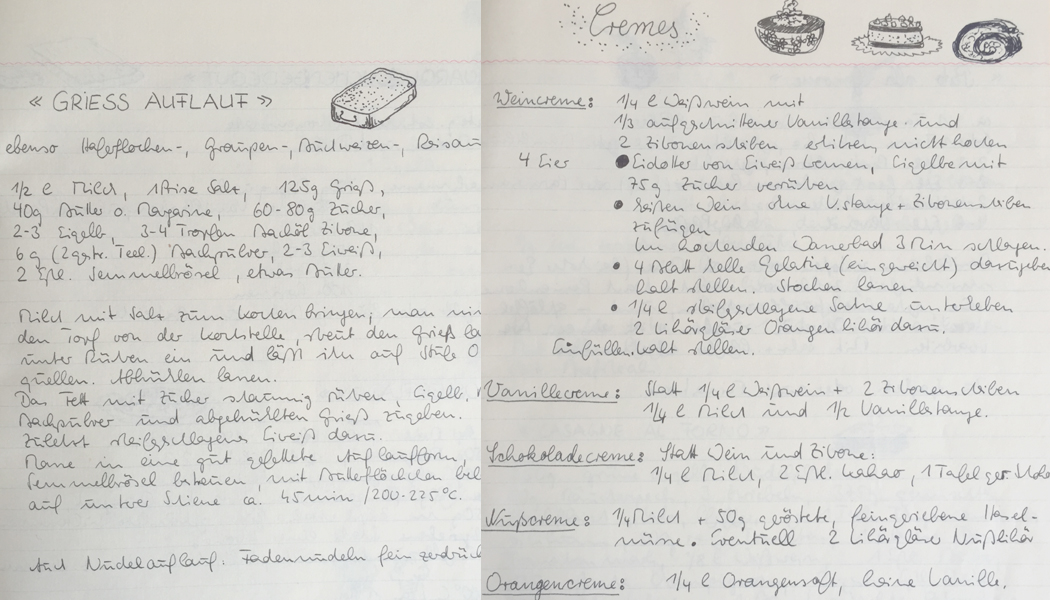 « GRIESS AUFLAUF »
ebenso Haferflocken-, Graupen-, Buchweizen-, Reisauf
1/2 l Milch, 1 Prise Salz, 125g Grieß,
40g Butter o. Margarine, 60-80g Zucker,
2-3 Eigelb, 3-4 Tropfen Backöl Zitrone,
6 g (2 gstr. Teel.) Backpulver, 2-3 Eiweiß,
2 Eßl. Semmelbrösel, etwas Butter.
Milch mit Salz zum kochen bringen, man nim
den Topf von der Kochstelle, streut den Grieß la
unter Rühren ein und läßt ihn auf Stufe 0
quellen. Abkühlen lassen.
Das Fett mit Zucker schaumig rühren, Eigelb,
Backpulver und abgekühlten Grieß zugeben.
Zuletzt steifgeschlagenes Eiweiß dazu.
Masse in eine gut gefettete Auflaufform,
Semmelbrösel bestreuen, mit Butterflöckchen bel
auf unterer Schiene ca. 45 min /200-225°C.
Auch Nudelauflauf. Fadennudeln fein zerdrück
Cremes
Weincreme: 1/4 l Weißwein mit
1/3 aufgeschnittener Vanillestange und
2 Zitronenscheiben erhitzen, nicht kochen
4 Eier Eidotter von Eiweiß trennen, Eigelbe mit
75g Zucker verrühren
heißen Wein ohne V.stange + Zitronenscheiben
zufügen
Im kochenden Wasserbad 3 Min schlagen.
4 Blatt helle Gelatine (eingeweicht) dazugeben
kalt stellen. Stocken lassen
1/4 l steifgeschlagene Sahne unterheben
2 Likörgläser Orangenlikör dazu.
Einfüllen. kalt stellen.
Vanillecreme: Statt 1/4 l Weißwein + 2 Zitronenscheiben
1/4 l Milch und 1/2 Vanillestange.
Schokoladecreme: Statt Wein und Zitrone:
1/4 l Milch, 2 Eßl. Kakao, 1 Tafel ger. Scho
Nußcreme: 1/4 Milch + 50g geröstete, feingeriebene Hasel-
nüsse. Eventuell 2 Likörgläser Nußlikör
Orangencreme: 1/4 l Orangensaft, keine Vanille.